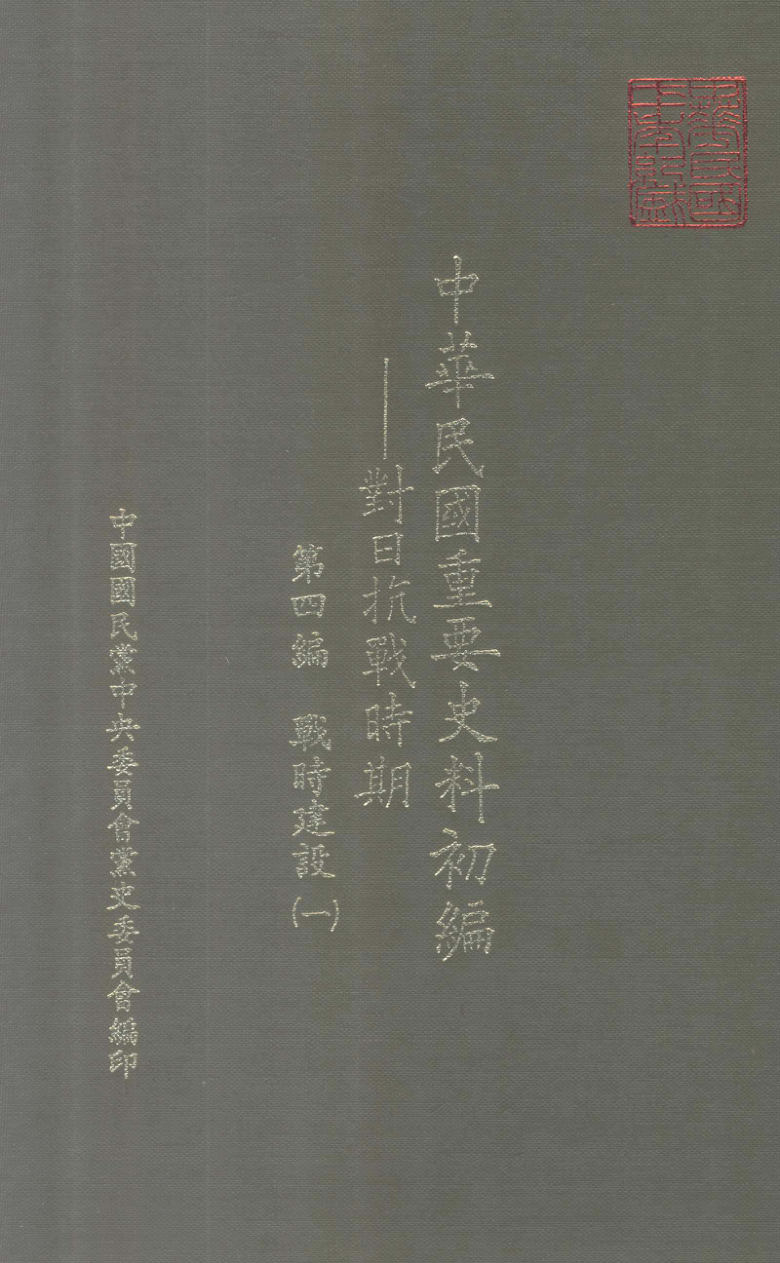 中華民國重要史料初編
——對日抗戰時期
第四編　戰時建設(一)
中國國民黨中央委員會黨史委員會編印